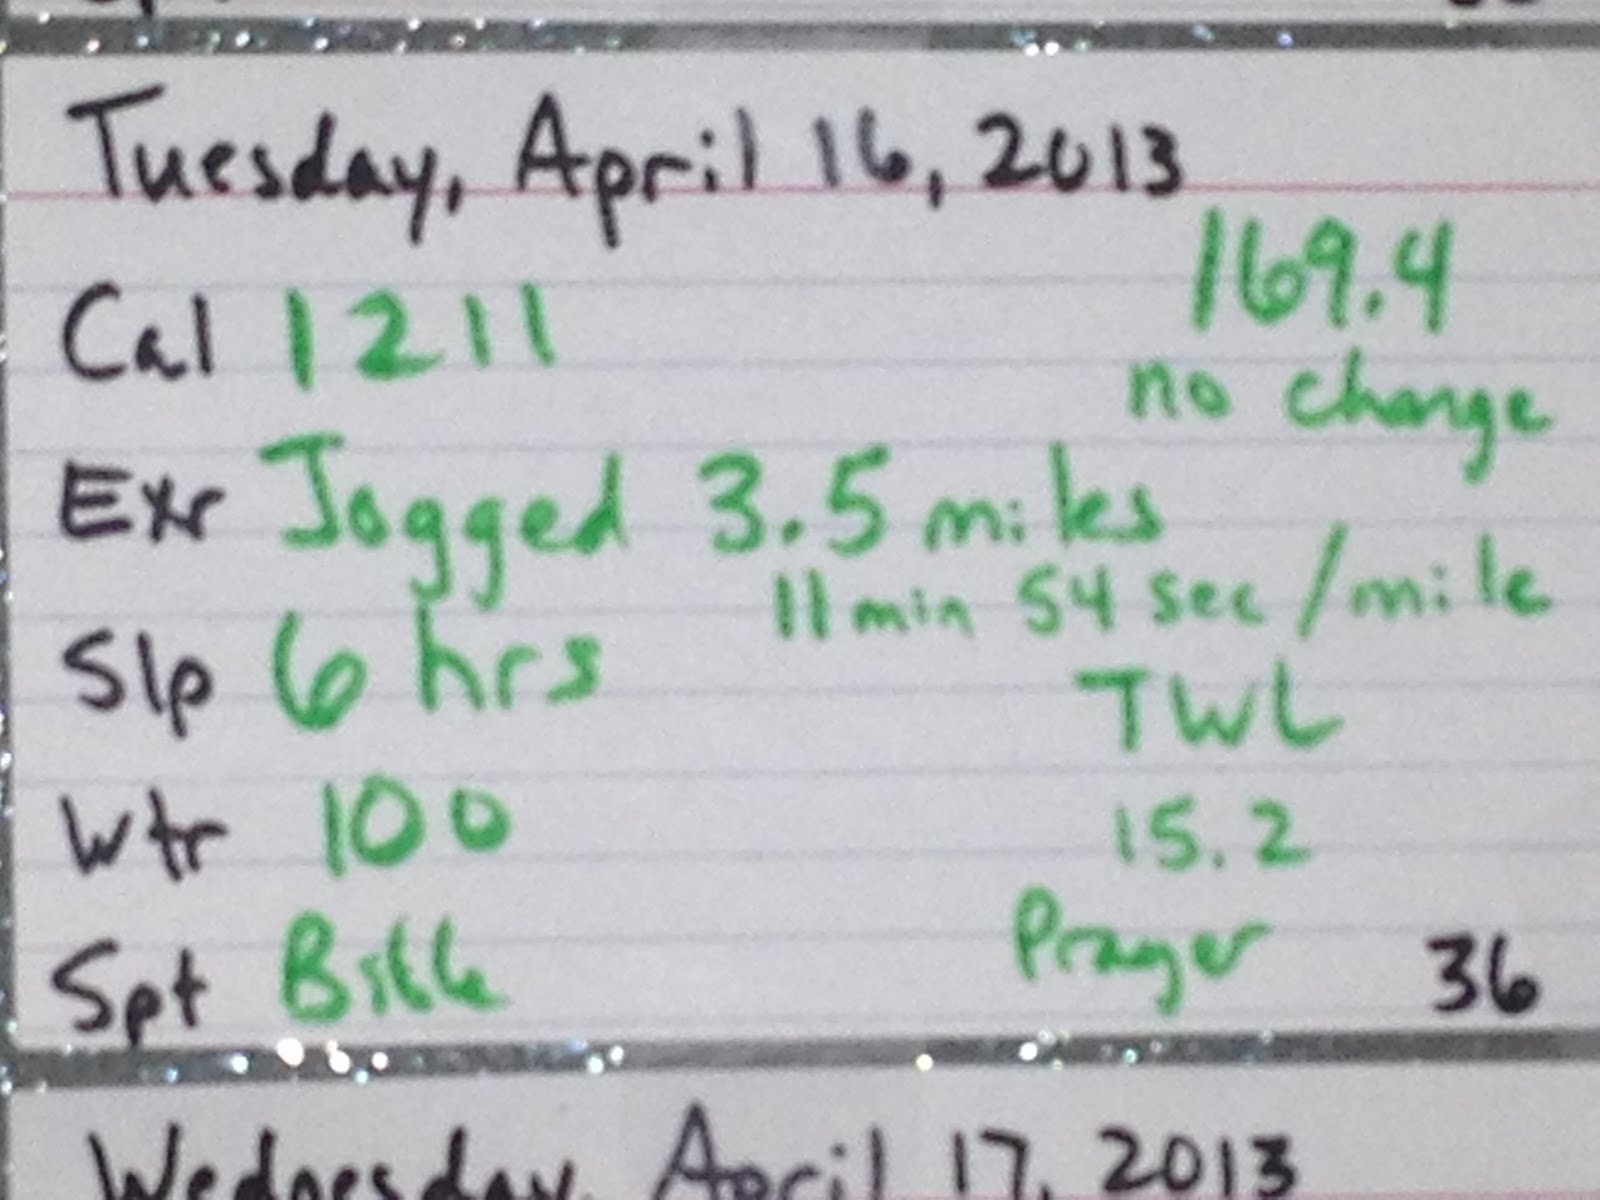 Tuesday, April 16, 2013
169.4
Cal 1211
no change
Exr Jogged 3.5 miles
11 min 54 sec/mile
Slp 6 hrs
TWL
Wtr 100
15.2
Spt Bible Prayer 36
Wednesday, April 17, 2013